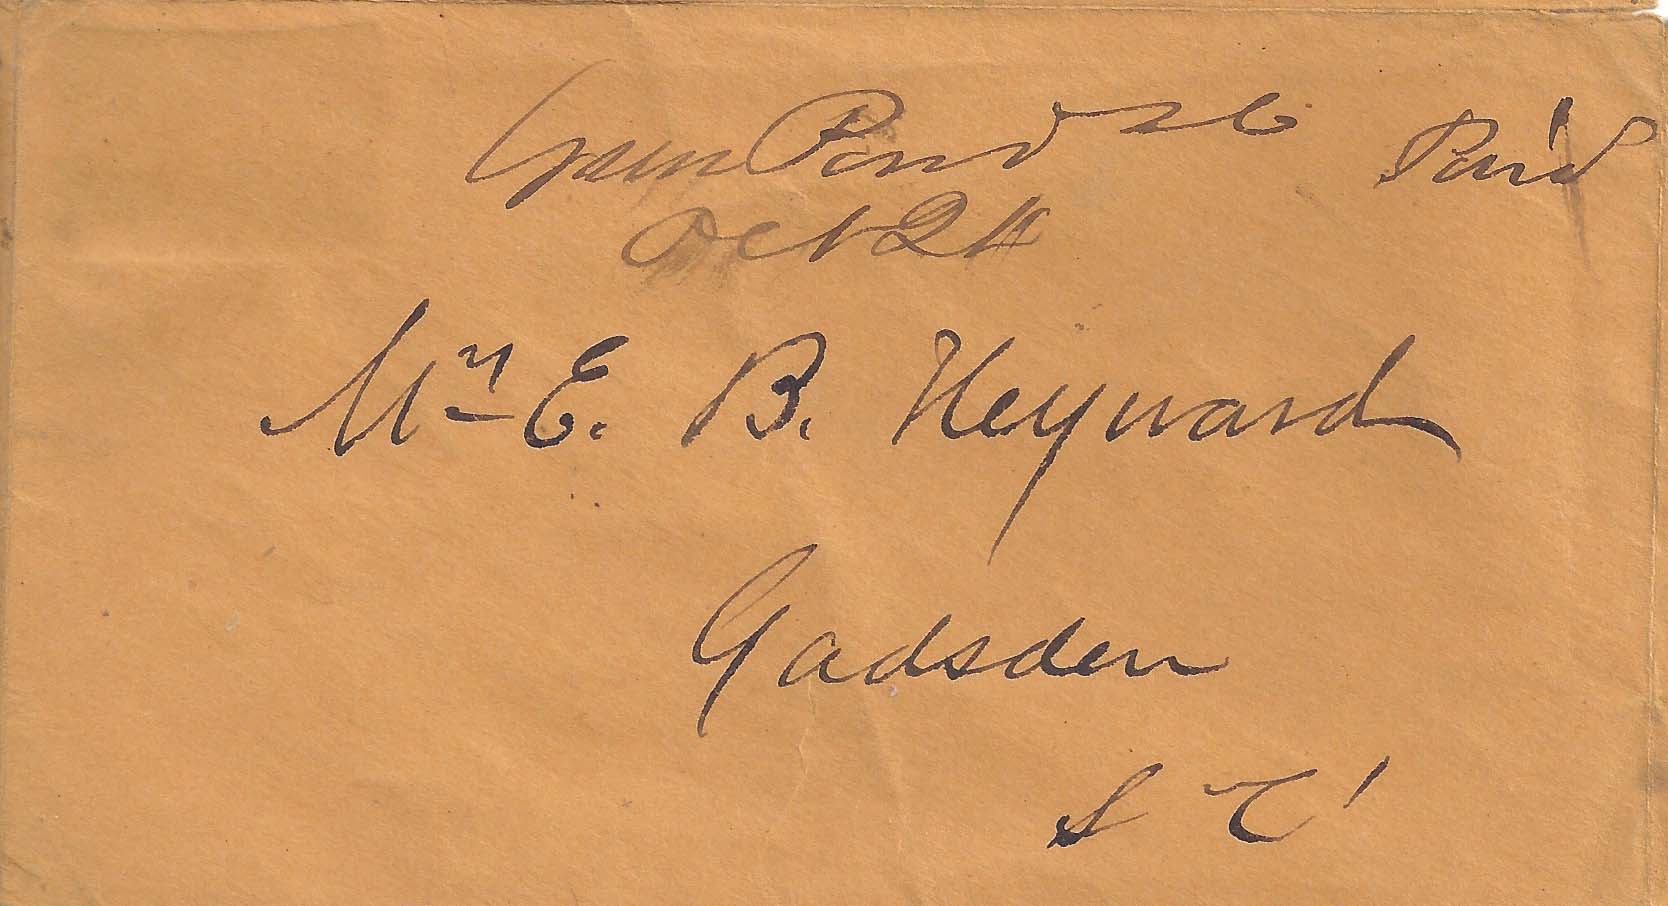 Green Pond SC Paid
Oct 24
Mr E. B. Heyward
Gadsden
S C